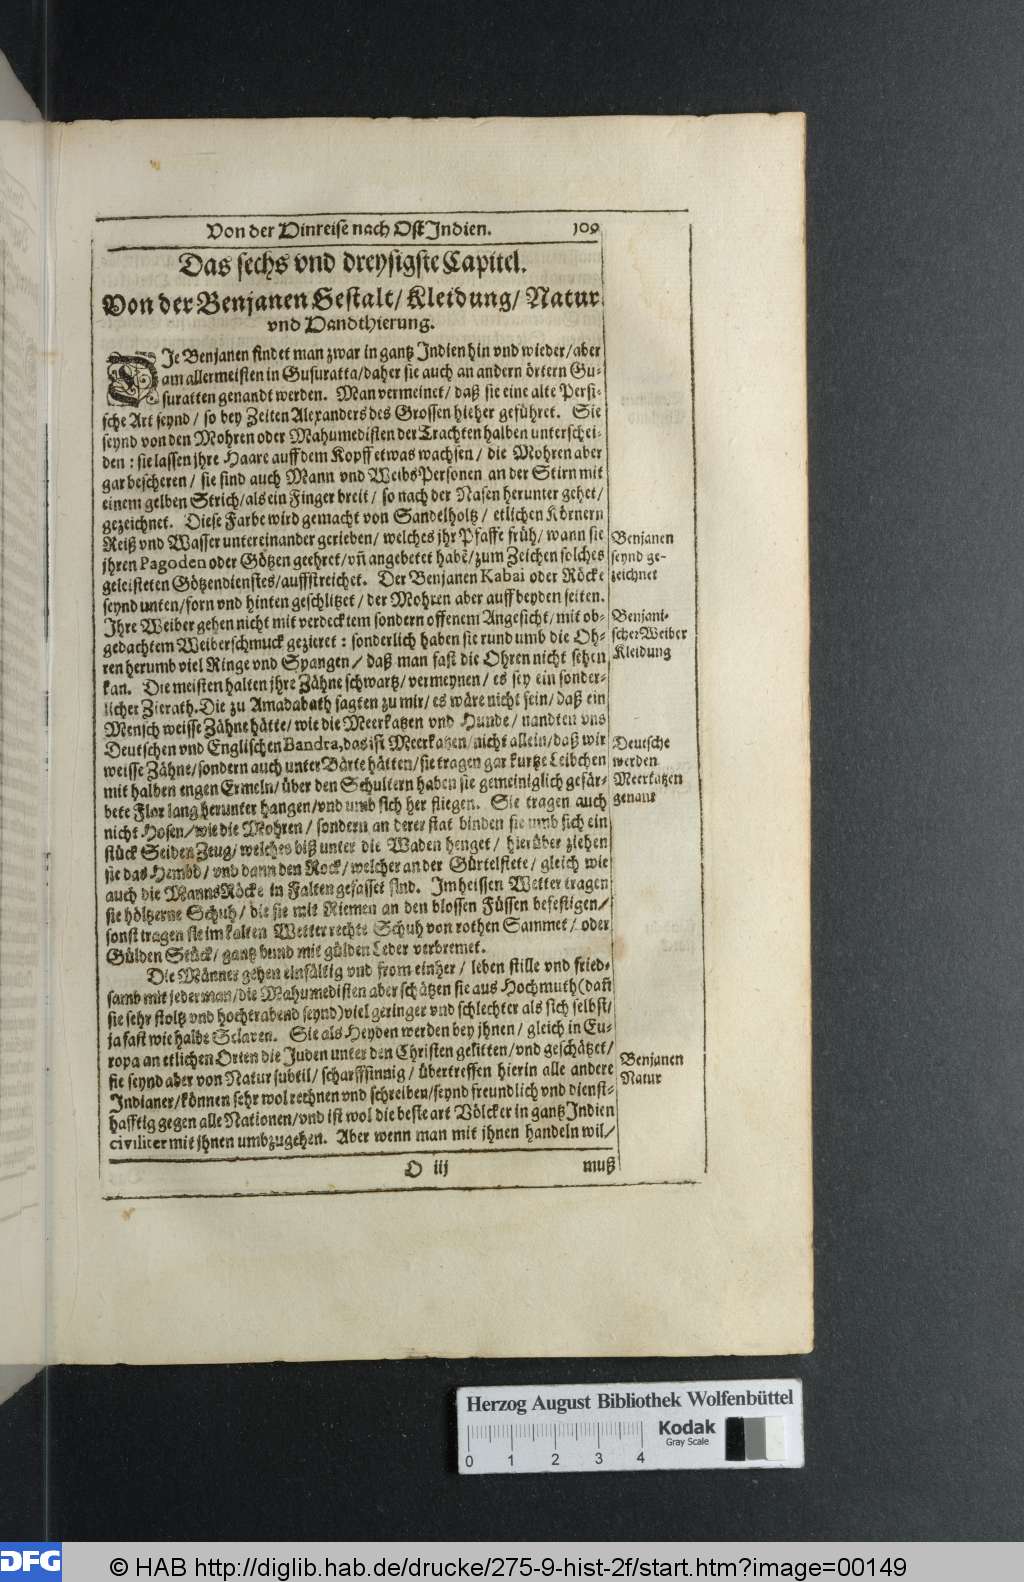 Von der Hinreise nach Ost Indien. 109
Das sechs vnd dreysigste Capitel.
Von der Benjanen Gestalt/ Kleidung/ Natur
vnd Handthierung.
DIe Benjanen findet man zwar in gantz Indien hin vnd wieder/ aber
am allermeisten in Gusuratta/ daher sie auch an andern örtern Gu-
suratten genandt werden. Man vermeinet/ daß sie eine alte Persi-
sche Art seynd/ so bey Zeiten Alexanders des Grossen hieher geführet. Sie
seynd von den Mohren oder Mahumedisten der Trachten halben unterschei-
den: sie lassen jhre Haare auff dem Kopff etwas wachsen/ die Mohren aber
gar bescheren/ sie sind auch Mann vnd WeibsPersonen an der Stirn mit
einem gelben Strich/ als ein Finger breit/ so nach der Nasen herunter gehet/
gezeichnet. Diese Farbe wird gemacht von Sandelholtz/ etlichen Körnern
Reiß vnd Wasser untereinander gerieben/ welches jhr Pfaffe früh/ wann sie
jhren Pagoden oder Götzen geehret/ vñ angebetet habẽ/ zum Zeichen solches
geleisteten Götzendienstes/ auffstreichet. Der Benjanen Kabai oder Röcke
seynd unten/ forn vnd hinten geschlitzet/ der Mohren aber auff beyden seiten.
Ihre Weiber gehen nicht mit verdecktem sondern offenem Angesicht/ mit ob-
gedachtem Weiberschmuck gezieret: sonderlich haben sie rund umb die Oh-
ren herumb viel Ringe vnd Spangen/ daß man fast die Ohren nicht sehen
kan. Die meisten halten jhre Zähne schwartz/ vermeynen/ es sey ein sonder-
licher Zierath. Die zu Amadabath sagten zu mir/ es wäre nicht fein/ daß ein
Mensch weisse Zähne hätte/ wie die Meerkatzen vnd Hunde/ nandten vns
Deutschen vnd Englischen Bandra, das ist Meerkatzen/ nicht allein/ daß wir
weisse Zähne/ sondern auch unter Bärte hätten/ sie tragen gar kurtze Leibchen
mit halben engen Ermeln/ über den Schultern haben sie gemeiniglich gefär-
bete Flor lang herunter hangen/ vnd umb sich her fliegen. Sie tragen auch
nicht Hosen/ wie die Mohren/ sondern an derer stat binden sie umb sich ein
stück Seiden Zeug/ welches biß unter die Waden henget/ hierüber ziehen
sie das Hembd/ vnd dann den Rock/ welcher an der Gürtelstete/ gleich wie
auch die MannsRöcke in Falten gefasset sind. Im heissen Wetter tragen
sie höltzerne Schuh/ die sie mit Riemen an den blossen Füssen befestigen/
sonst tragen sie im kalten Wetter rechte Schuh von rothen Sammet/ oder
Gülden Stück/ gantz bund mit gülden Leder verbremet.
Die Männer gehen einfältig vnd from einher/ leben stille vnd fried-
samb mit jederman/ die Mahumedisten aber schätzen sie aus Hochmuth (dañ
sie sehr stoltz vnd hochtrabend seynd) viel geringer vnd schlechter als sich selbst/
ja fast wie halbe Sclaven. Sie als Heyden werden bey jhnen/ gleich in Eu-
ropa an etlichen Orten die Juden unter den Christen gelitten/ vnd geschätzet/
sie seynd aber von Natur subtil/ scharffsinnig/ übertreffen hierin alle andere
Indianer/ können sehr wol rechnen vnd schreiben/ seynd freundlich vnd dienst-
hafftig gegen alle Nationen/ vnd ist wol die beste art Völcker in gantz Indien
civiliter mit jhnen umbzugehen. Aber wenn man mit jhnen handeln wil/
O iij muß
Benjanen
seynd ge-
zeichnet
Benjani-
scher Weiber
Kleidung
Deutsche
werden
Meerkatzen
genant
Benjanen
Natur
Herzog August Bibliothek Wolfenbüttel
Kodak
Gray Scale
0 1 2 3 4
DFG
© HAB http://diglib.hab.de/drucke/275-9-hist-2f/start.htm?image=00149